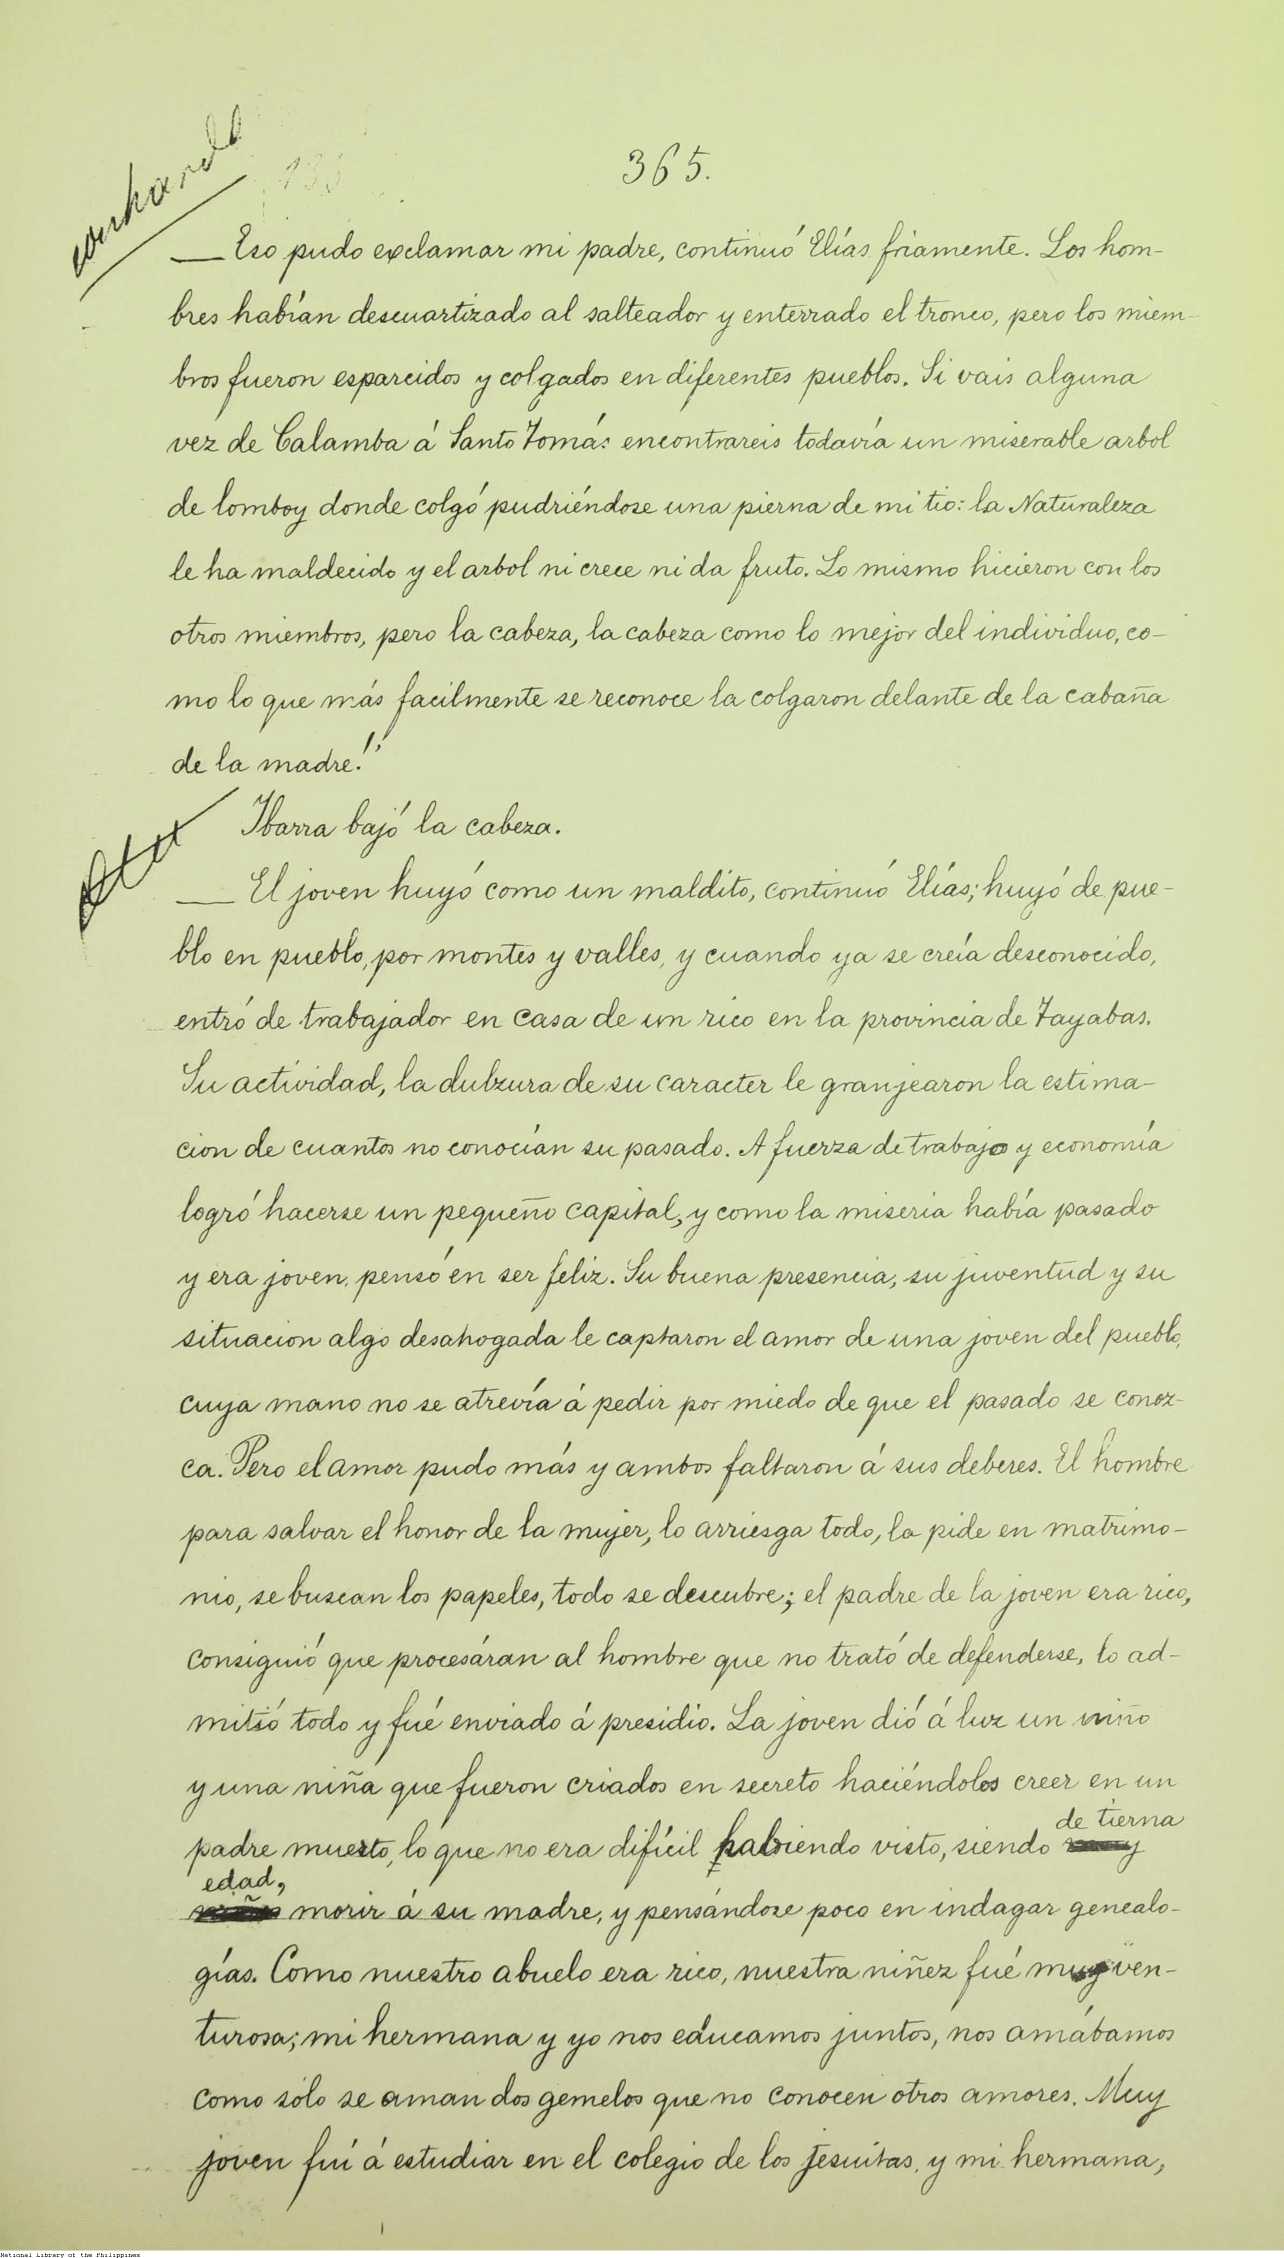 365.
— Eso pudo exclamar mi padre, continuó Elías friamente. Los hom-
bres habían descuartizado al salteador y enterrado el tronco, pero los miem-
bros fueron esparcidos y colgados en diferentes pueblos. Si vais alguna
vez de Calamba á Santo Tomás encontrareis todavía un miserable arbol
de lomboy donde colgó pudriéndose una pierna de mi tio: la Naturaleza
le ha maldecido y el arbol ni crece ni da fruto. Lo mismo hicieron con los
otros miembros, pero la cabeza, la cabeza como lo mejor del individuo, co-
mo lo que más facilmente se reconoce la colgaron delante de la cabaña
de la madre!
Ibarra bajó la cabeza.
— El joven huyó como un maldito, continuó Elías; huyó de pue-
blo en pueblo, por montes y valles, y cuando ya se creía desconocido,
entró de trabajador en casa de un rico en la provincia de Tayabas.
Su actividad, la dulzura de su caracter le granjearon la estima-
cion de cuantos no conocían su pasado. A fuerza de trabajo y economía
logró hacerse un pequeño capital, y como la miseria había pasado
y era joven, pensó en ser feliz. Su buena presencia, su juventud y su
situacion algo desahogada le captaron el amor de una joven del pueblo,
cuya mano no se atrevía á pedir por miedo de que el pasado se conoz-
ca. Pero el amor pudo más y ambos faltaron á sus deberes. El hombre
para salvar el honor de la mujer, lo arriesga todo, la pide en matrimo-
nio, se buscan los papeles, todo se descubre; el padre de la joven era rico,
consiguió que procesáran al hombre que no trató de defenderse, lo ad-
mitió todo y fué enviado á presidio. La joven dió á luz un niño
y una niña que fueron criados en secreto haciéndoles creer en un
padre muerto, lo que no era difícil habiendo visto, siendo de tierna
edad, morir á su madre, y pensándose poco en indagar genealo-
gías. Como nuestro abuelo era rico, nuestra niñez fué muy ven-
turosa; mi hermana y yo nos educamos juntos, nos amábamos
como sólo se aman dos gemelos que no conocen otros amores. Muy
joven fuí á estudiar en el colegio de los jesuitas, y mi hermana,
National Library of the Philippines